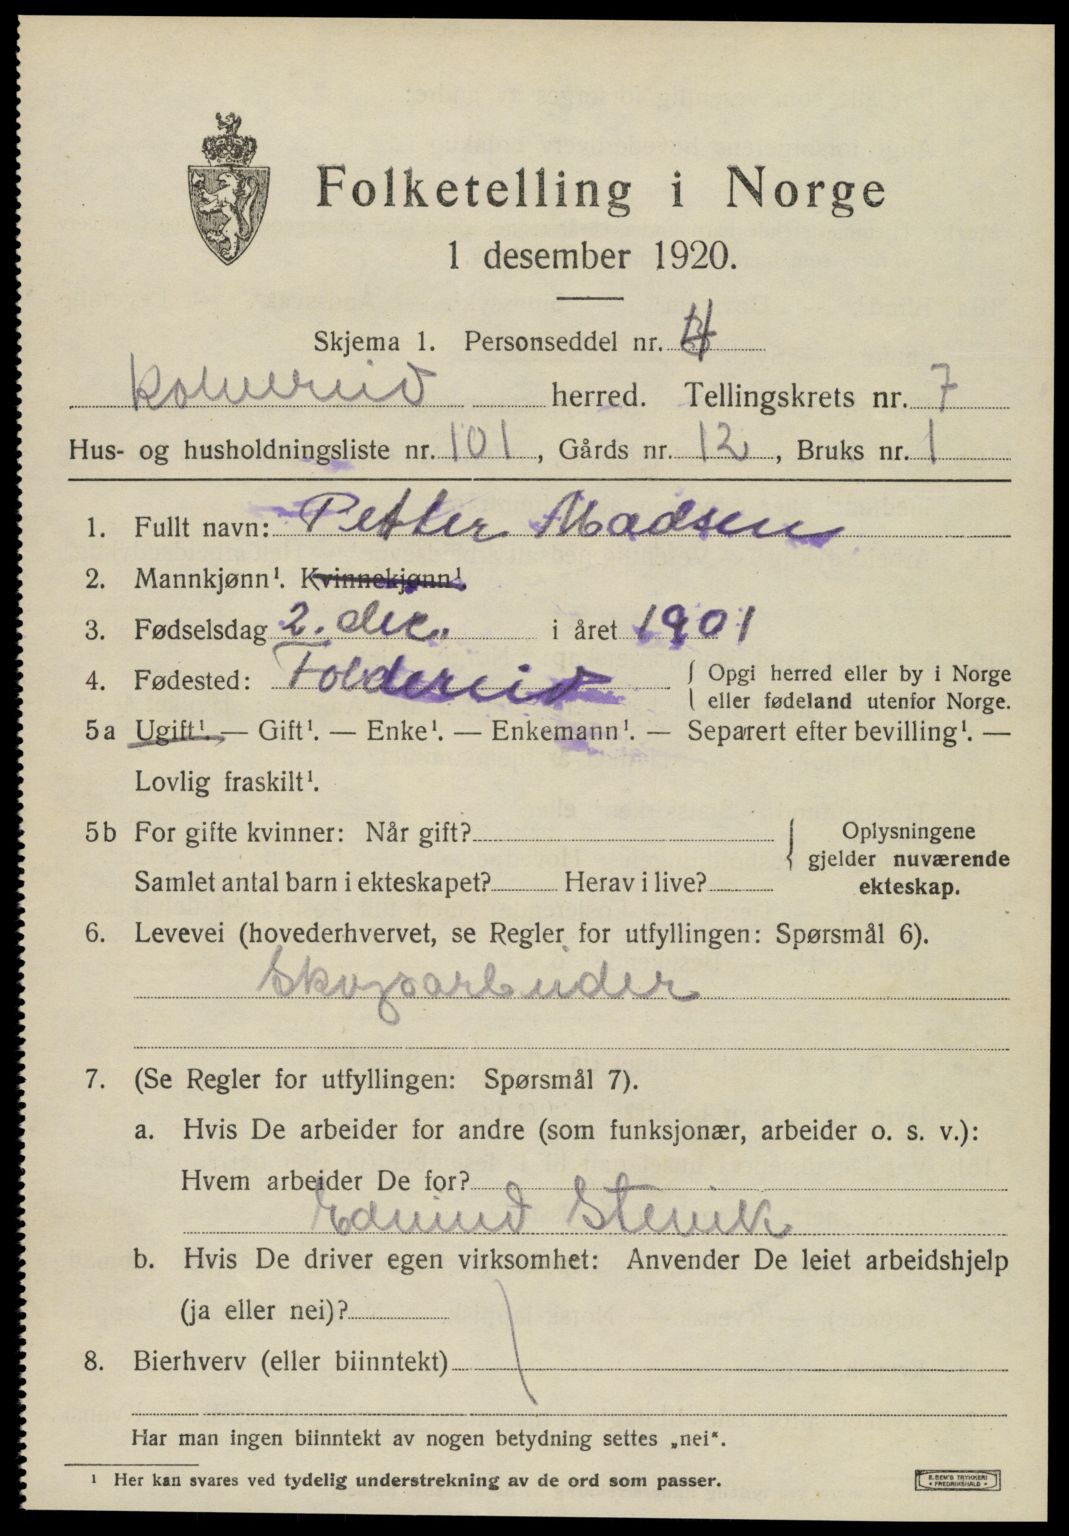 Folketelling i Norge
1 desember 1920.
Skjema 1. Personseddel nr. 4
Kolvereid herred. Tellingskrets nr. 7
Hus- og husholdningsliste nr. 101, Gårds nr. 12, Bruks nr. 1
1. Fullt navn: Petter Madsen
2. Mannkjønn¹. Kvinnekjønn¹.
3. Fødselsdag 2. dec. i året 1901
4. Fødested: Foldereid { Opgi herred eller by i Norge
eller fødeland utenfor Norge.
5a Ugift¹. — Gift¹. — Enke¹. — Enkemann¹. — Separert efter bevilling¹. —
Lovlig fraskilt¹.
5b For gifte kvinner: Når gift? { Oplysningene
gjelder nuværende
Samlet antal barn i ekteskapet? Herav i live? ekteskap.
6. Levevei (hovederhvervet, se Regler for utfyllingen: Spørsmål 6).
Skogsarbeider
7. (Se Regler for utfyllingen: Spørsmål 7).
a. Hvis De arbeider for andre (som funksjonær, arbeider o. s. v.):
Hvem arbeider De for?
Edvind Stenvik
b. Hvis De driver egen virksomhet: Anvender De leiet arbeidshjelp
(ja eller nei)?
8. Bierhverv (eller biinntekt)
Har man ingen biinntekt av nogen betydning settes „nei“.
¹ Her kan svares ved tydelig understrekning av de ord som passer.
E. SEM'S TRYKKERI
• FREDRIKSHALD •